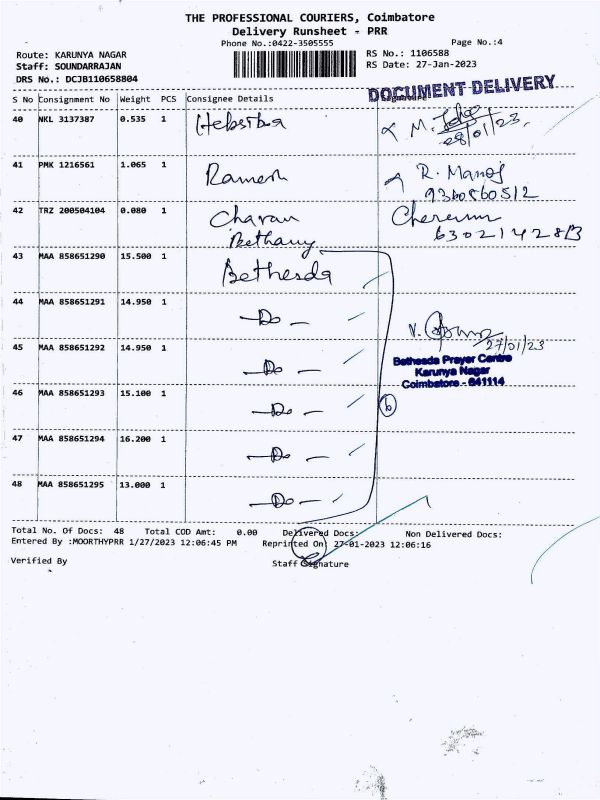 THE PROFESSIONAL COURIERS, Coimbatore
Delivery Runsheet - PRR
Phone No.:0422-3505555
Page No.:4
Route: KARUNYA NAGAR
RS No.: 1106588
Staff: SOUNDARRAJAN
RS Date: 27-Jan-2023
DRS No.: DCJB110658804
DOCUMENT DELIVERY
S No Consignment No Weight PCS Consignee Details
40 NKL 3137387 0.535 1 M. 28/01/23.
41 PMK 1216561 1.065 1 Ramesh R. Manoj
9360560512
42 TRZ 200504104 0.080 1 Charan
Bethany
43 MAA 858651290 15.500 1 Bethesda
44 MAA 858651291 14.950 1 - Do - V.
27/01/23
45 MAA 858651292 14.950 1 - Do -
Bethesda Prayer Centre
Karunya Nagar
Coimbatore - 641114
46 MAA 858651293 15.100 1 - Do - 6
47 MAA 858651294 16.200 1 - Do -
48 MAA 858651295 13.000 1 - Do -
Total No. Of Docs: 48 Total COD Amt: 0.00 Delivered Docs: Non Delivered Docs:
Entered By :MOORTHYPRR 1/27/2023 12:06:45 PM Reprinted On 27-01-2023 12:06:16
Verified By
Staff Signature